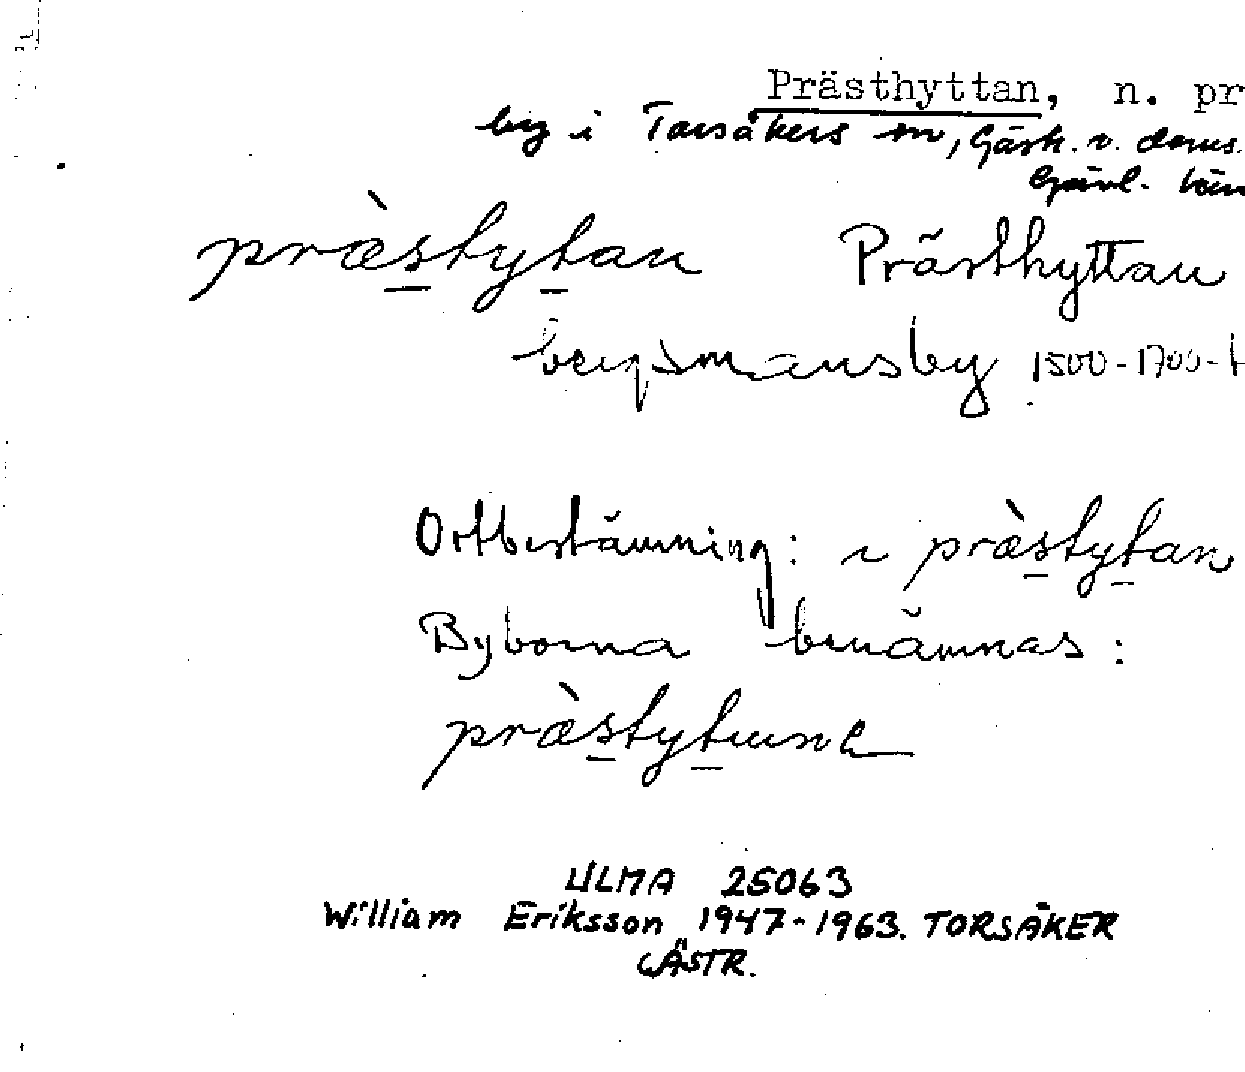 Prästhyttan, n. pr
by i Torsåkers sn, Gästr. v. doms.
Gävl. län
præ̀stytan Prästhyttan
bergsmansby 1500-1700-t
Ortbestämning: i præ̀stytan
Byborna benämnas:
præ̀stytune
ULMA 25063
William Eriksson 1947-1963. TORSÅKER
GÄSTR.